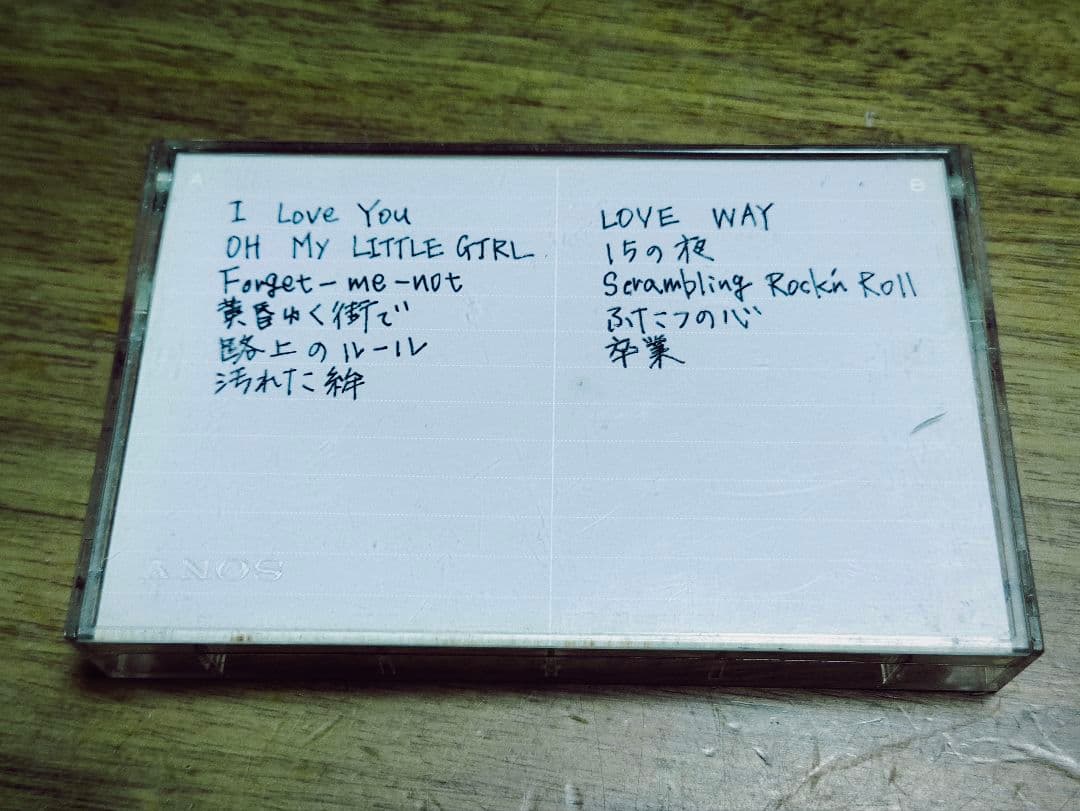 A
I Love You
OH MY LITTLE GIRL
Forget-me-not
黄昏ゆく街で
路上のルール
汚れた絆
B
LOVE WAY
15の夜
Scrambling Rock'n Roll
ふたつの心
卒業
SONY